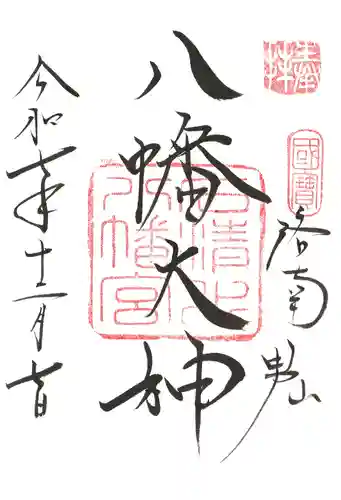 奉拝
國寶
洛南
男山
八幡大神
石清水八幡宮
令和年十二月日